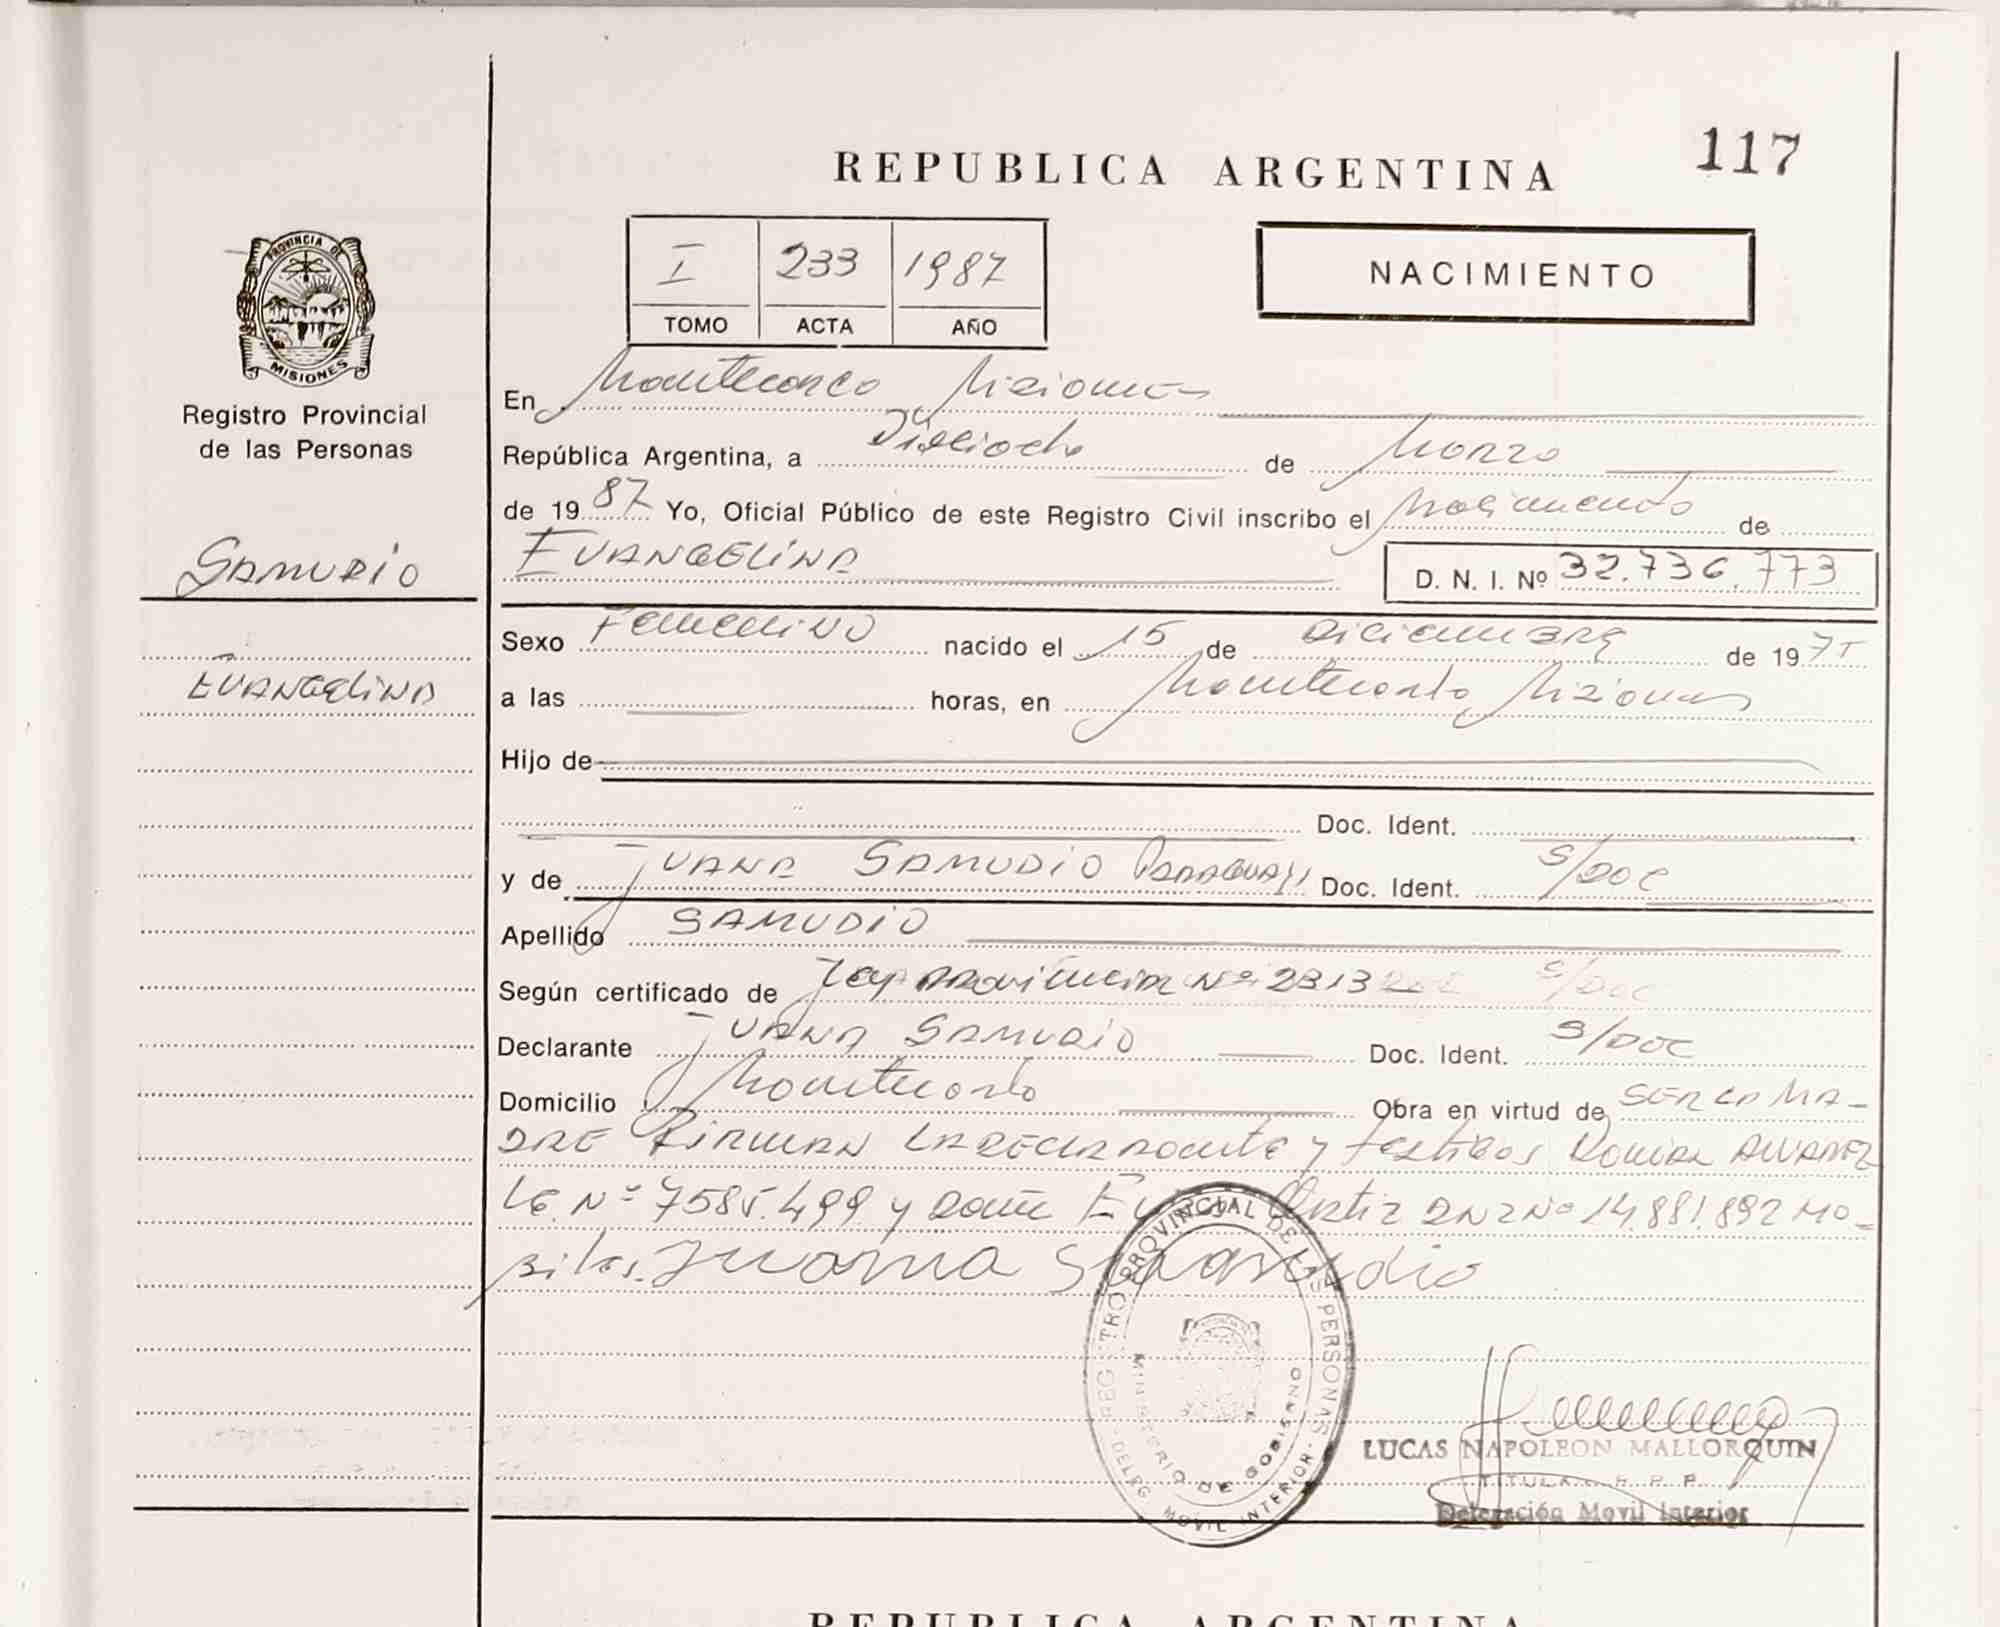 117
REPUBLICA ARGENTINA
I 233 1987
TOMO ACTA AÑO
NACIMIENTO
PROVINCIA DE
MISIONES
Registro Provincial
de las Personas
SAMUDIO
EVANGELINA
En Montecarlo Misiones
República Argentina, a Dieciocho de Marzo
de 1987 Yo, Oficial Público de este Registro Civil inscribo el Nacimiento de
EVANGELINA D. N. I. Nº 32.736.773
Sexo Femenino nacido el 15 de Diciembre de 197
a las horas, en Montecarlo Misiones
Hijo de
Doc. Ident.
y de JUANA SAMUDIO PARAGUAY Doc. Ident. S/DOC
Apellido SAMUDIO
Según certificado de Ley Provincial Nº 2313 S/DOC
Declarante JUANA SAMUDIO Doc. Ident. S/DOC
Domicilio Montecarlo Obra en virtud de SER LA MA-
DRE FIRMAN LA DECLARANTE y testigos ALVAREZ
LE. Nº 7585.499 y Ortiz DNI Nº 14.881.892 MO-
Juana Samudio
REGISTRO PROVINCIAL DE LAS PERSONAS - DELEG MOVIL INTERIOR -
MINISTERIO DE GOBIERNO
LUCAS NAPOLEON MALLORQUIN
TITULAR R. P. P.
Delegación Movil Interior
REPUBLICA ARGENTINA